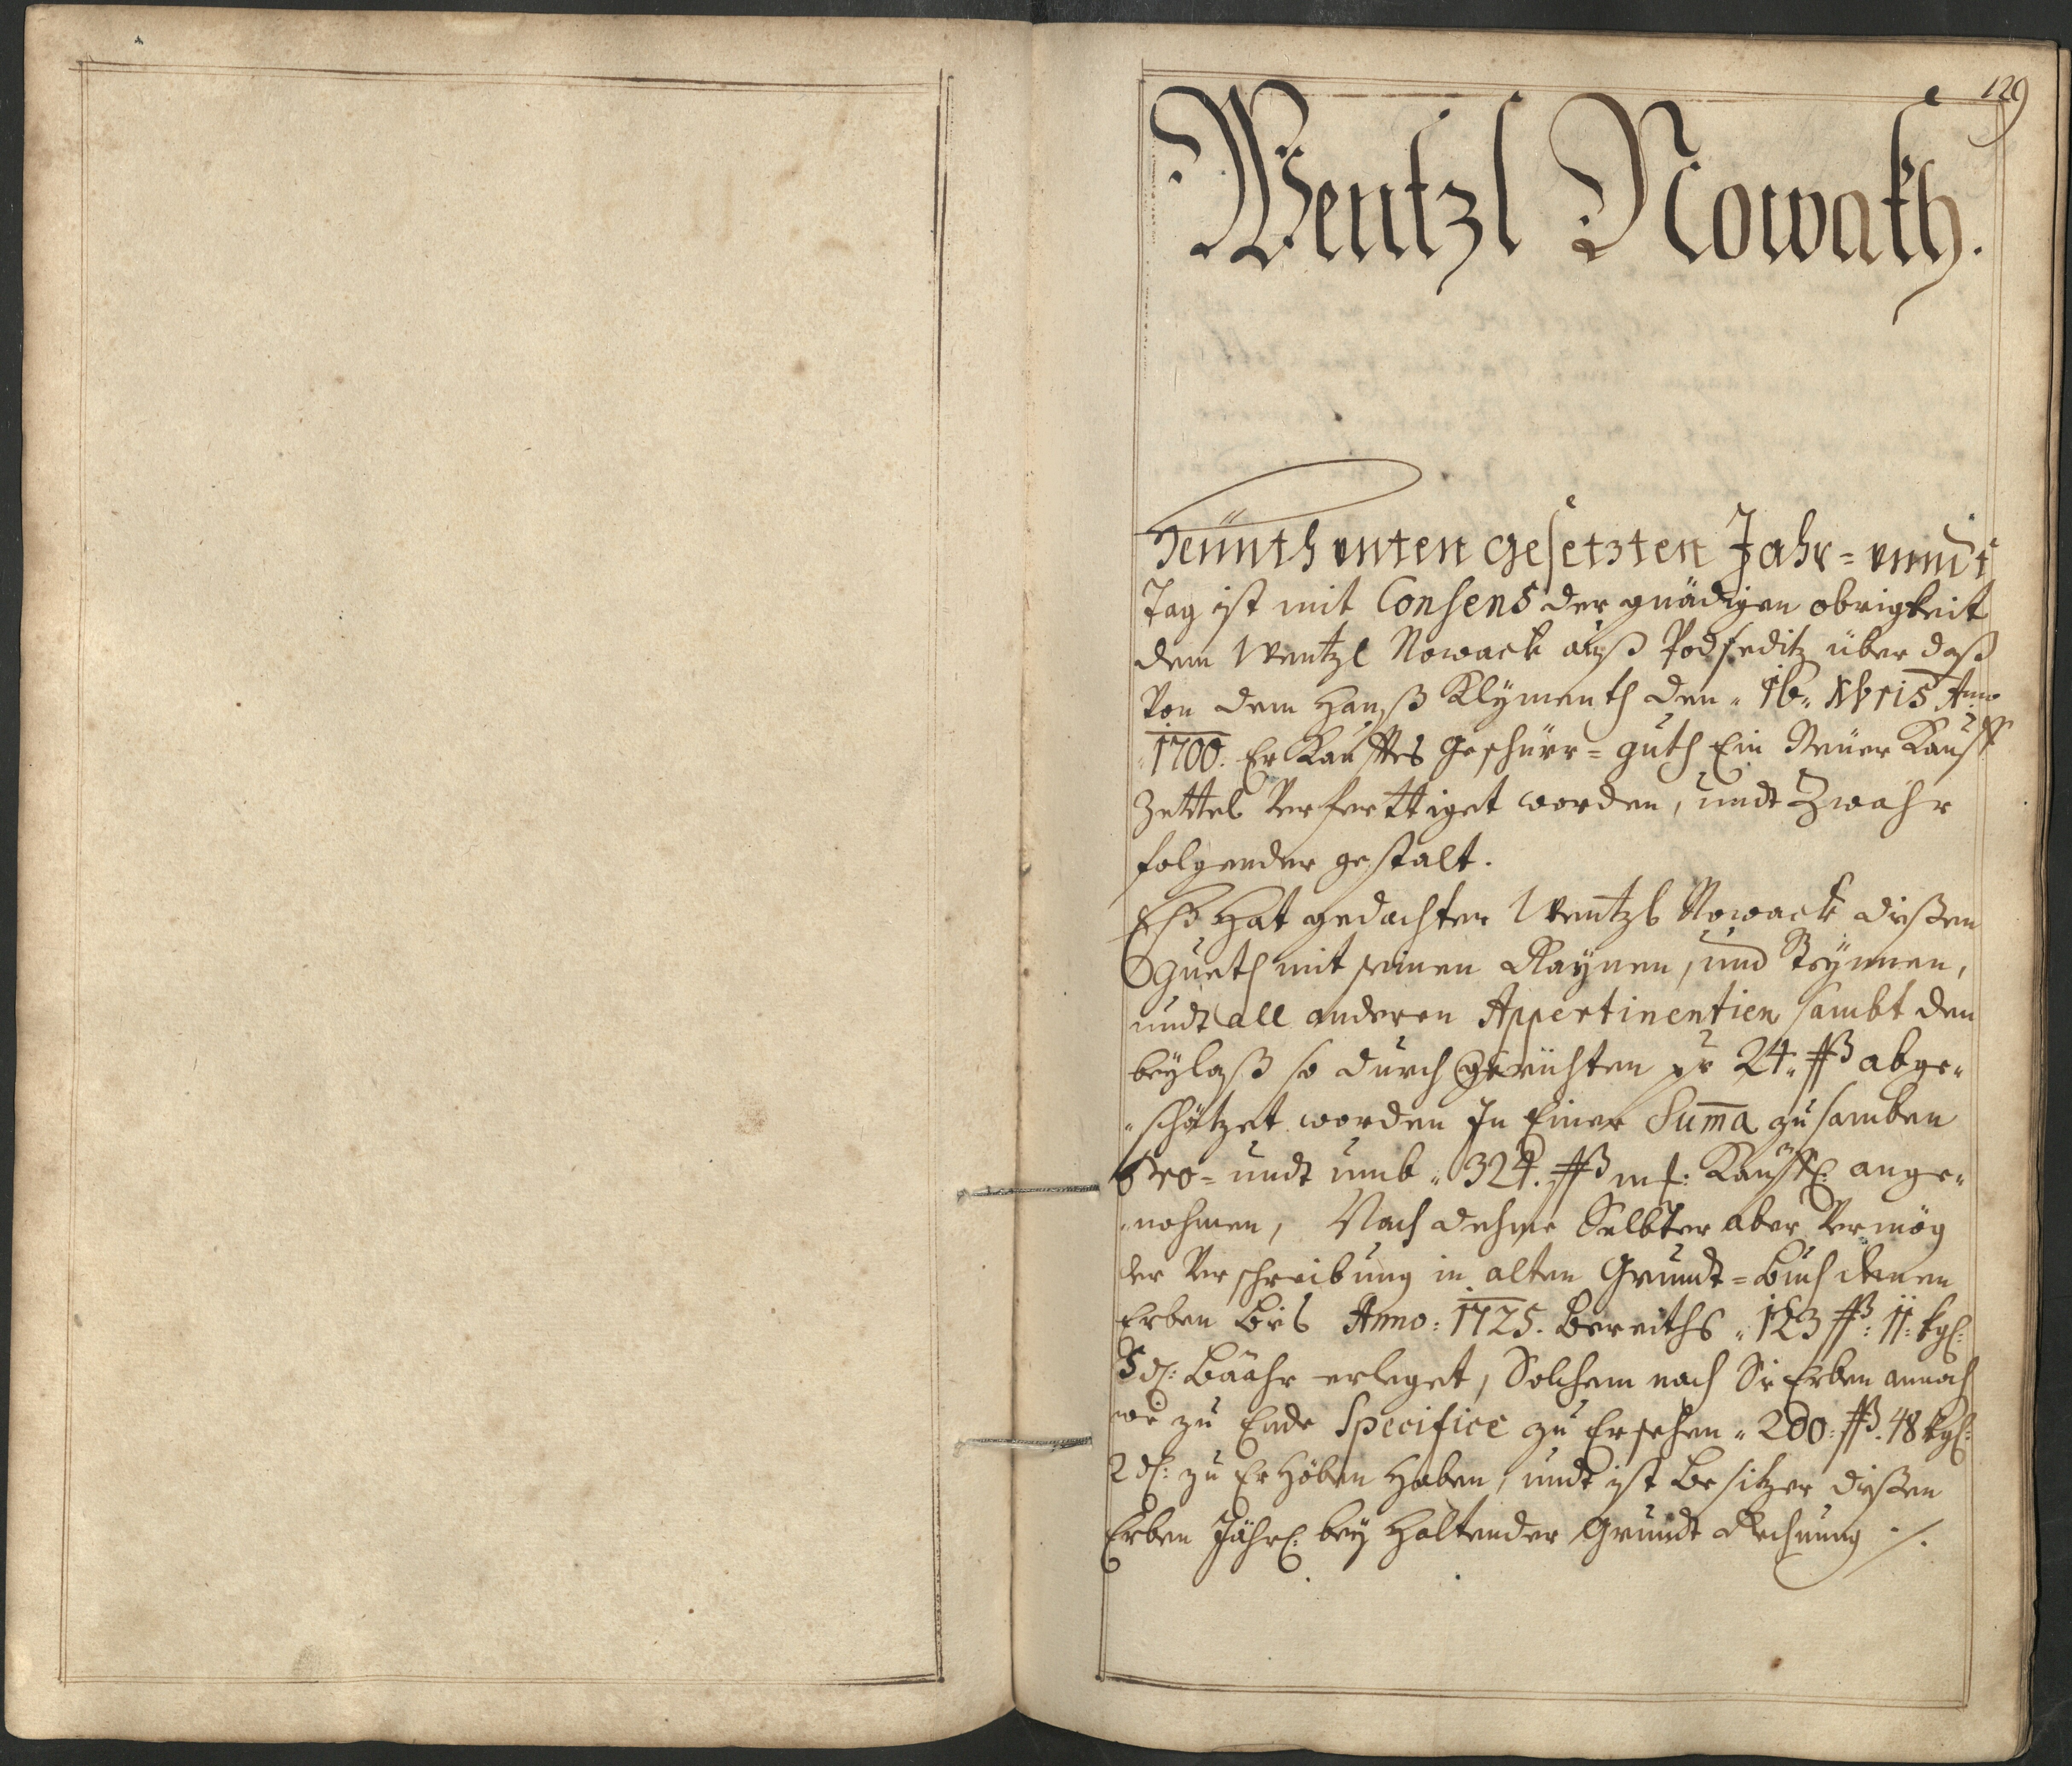 129
Wentzl Nowakh.
Heünth unten gesetzten Jahr= unndt
Tag ist mit Consens der gnädigen obrigkeit
dem Wentzl Nowack auß Podseditz über daß
Von dem Hanß Klÿmenth den „ 16 „ Xbris Anno
1700. Er Kaufftes Geschürr= guth Ein Neüer Kauff
Zettel Verferttiget worden, undt Zwahr
folgender gestalt.
Eß Hat gedachter Wentzl Nowack dißen
gueth mit seinen Raÿnen, und
undt all anderen Appertinentien sambt den
beÿlaß so durch Gerichten pr 24 „ ßß abge„
„schätzet worden In Einer Sum̄a zu samben
Pro= undt umb „ 324. ßß m f: Kauffl: ange„
„nohmen, Nach dehme Selbter aber Vermög
der Verschreibung in alten Grundt= Buch denen
Erben Bis Anno: 1725. Bereiths „ 123 ßß: 11: kgl:
5 dl: Bäahr erleget, Solchem nach Sie Erben annoch
wie zu Ende Specifice zu Ersehen „ 200: ßß. 48 kgl:
2 dl: zu Erhöben Haben, undt ist Besitzer dißen
Erben Jährl: beÿ Haltender Grundt Rechnung ./.